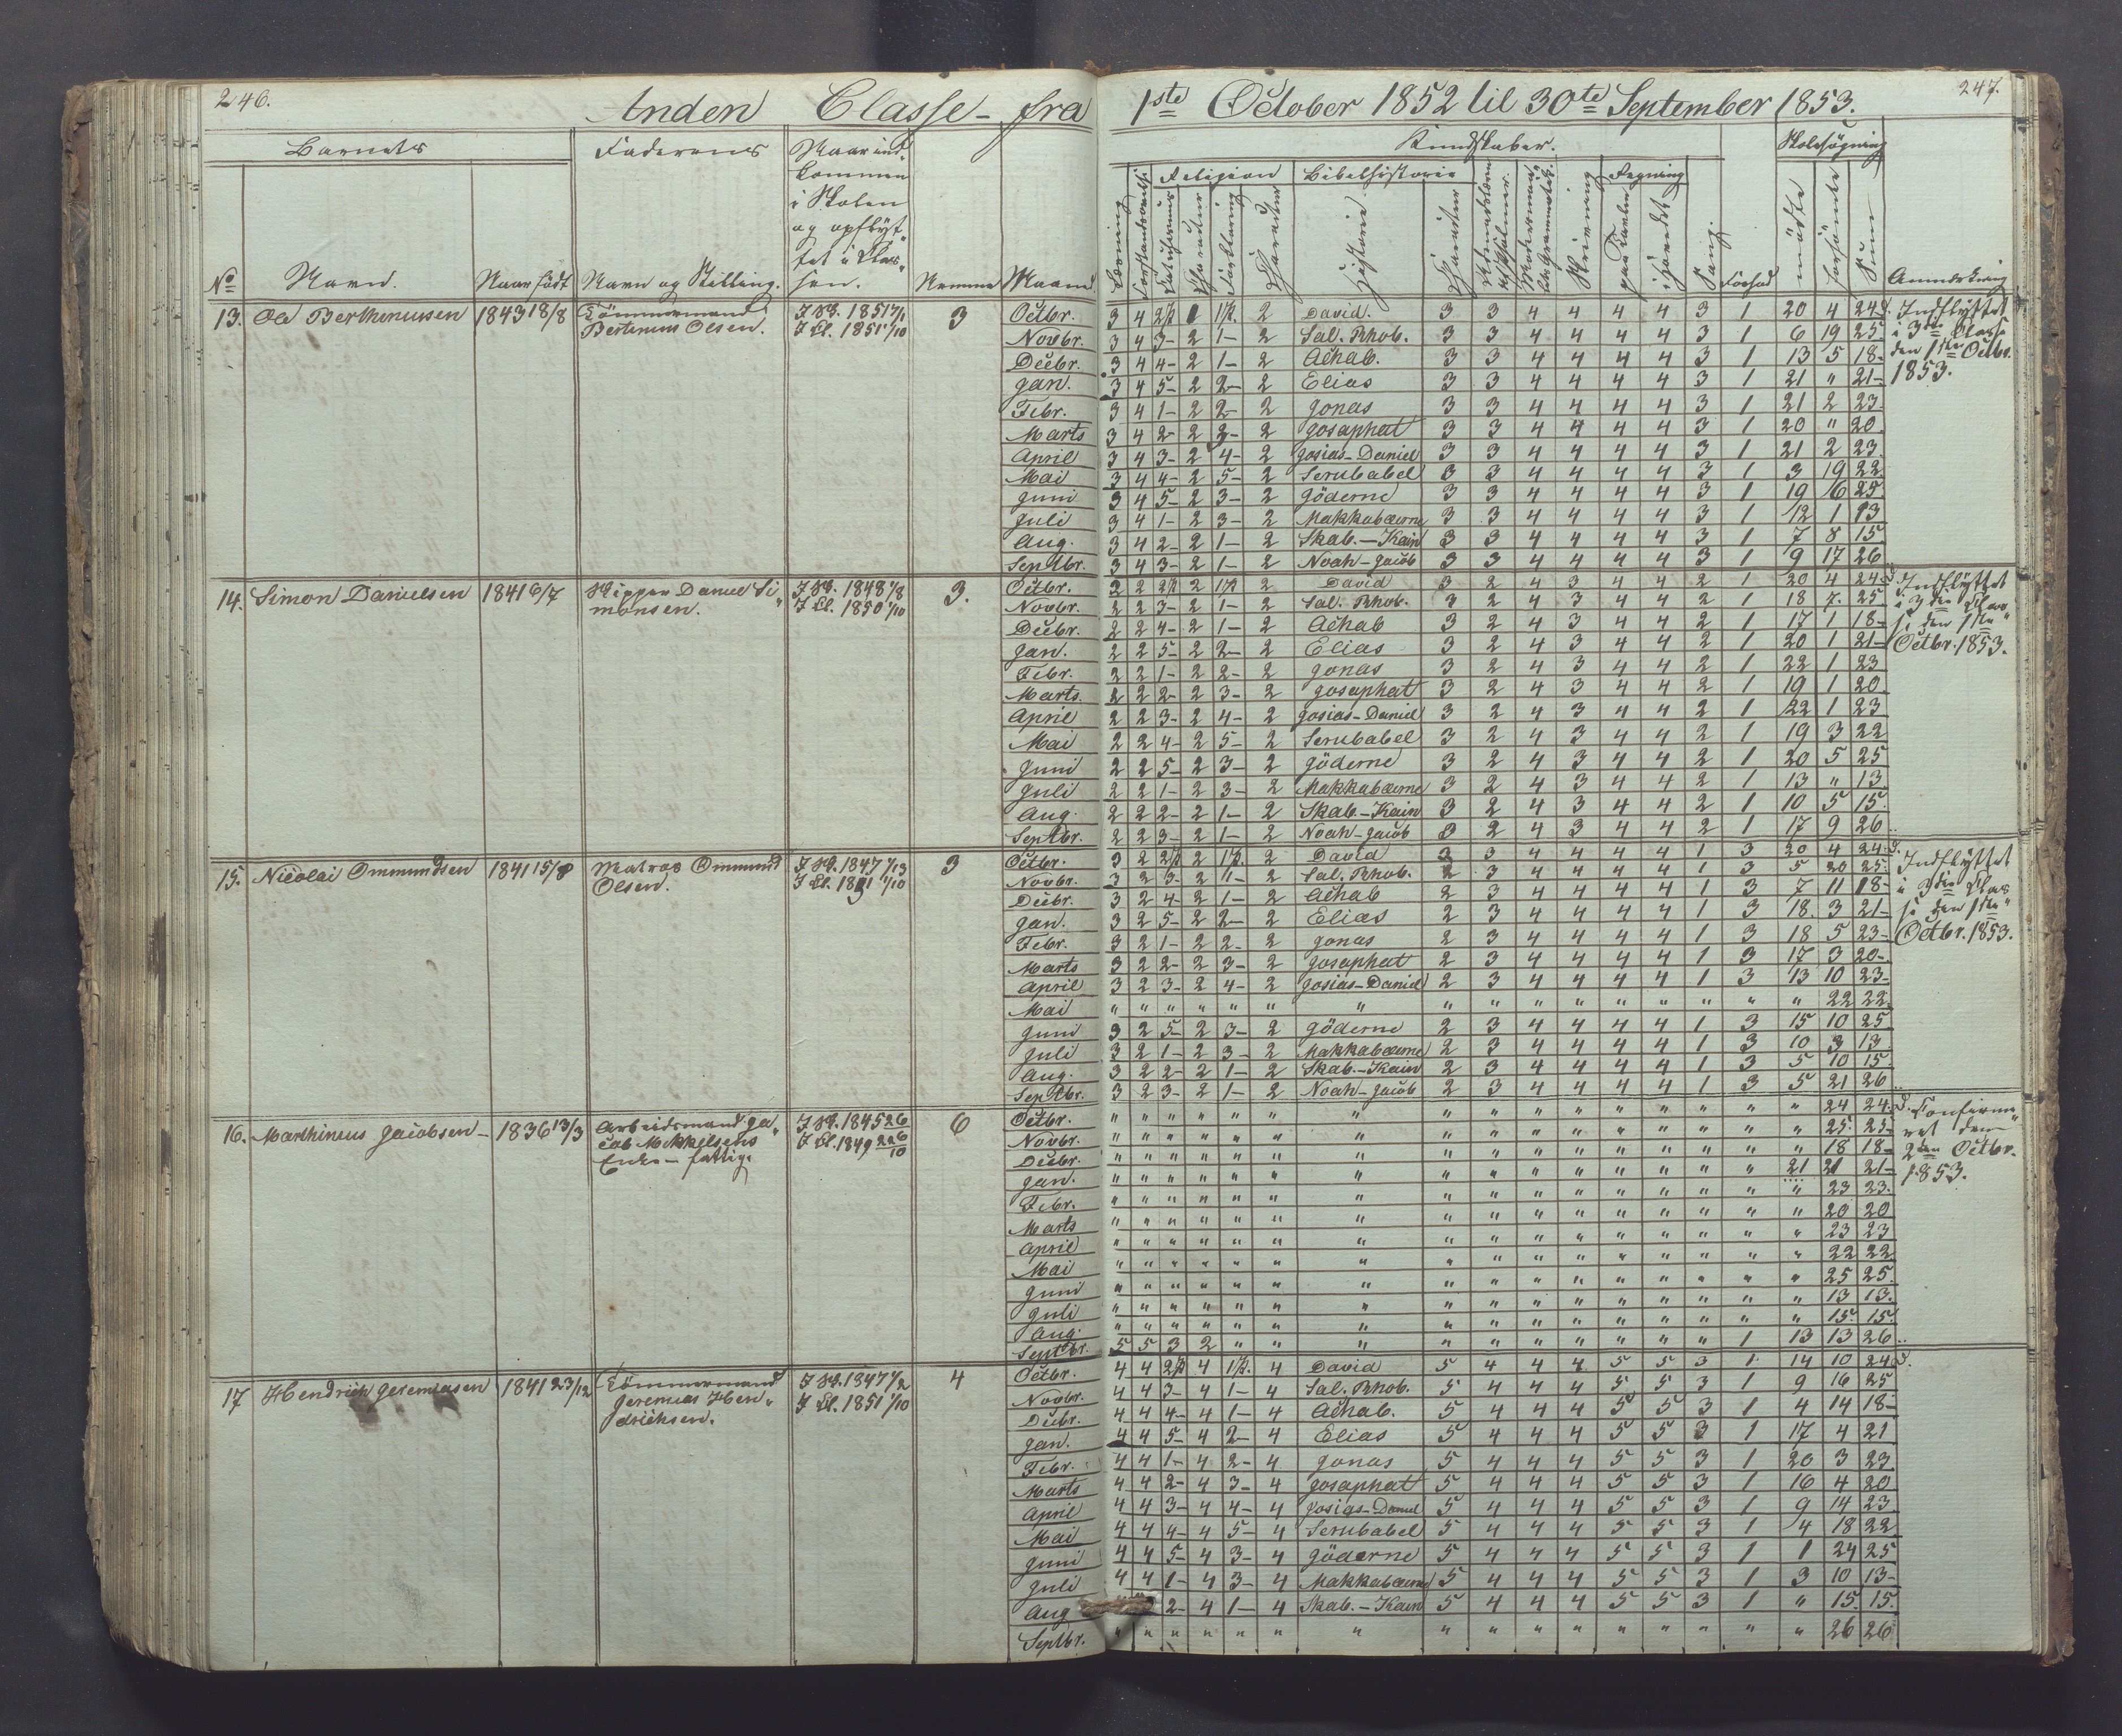 246.
247.
Anden Classe - fra 1ste October 1852 til 30te September 1853.
Barnets
Faderens
Naar ind-
kommen
i Skolen
og opflyt-
tet i Clas-
sen.
Kundskaber.
Skolesögning
Religion
Bibelhistorie
Regning
No
Navn.
Naar född
Navn og Stilling.
Nemme
Maaned
Læsning
Forklaring
Character
Historie
Character
Skrivning
paa Tavlen
i Hovedet
Sang.
Forhold
mödte
forsömte
Sum
Anmærkning
13. Ole Berthinussen 1843 18/8 Tömmermand
Bertinius Olsen.
I Sk. 1851
I Cl. 1851 1/10
3
Octbr. 3 4 2 1 2 David. 3 3 4 4 4 4 3 1 20 4 24
Novbr. 3 4 3- 2 1- 2 Sal. Rhob. 3 3 4 4 4 4 3 1 6 19 25
Decbr. 3 4 4- 2 1- 2 Achab. 3 3 4 4 4 4 3 1 13 5 18-
Jan. 3 4 5- 2 2- 2 Elias 3 3 4 4 4 4 3 1 21 " 21-
Febr. 3 4 1- 2 2- 2 Jonas 3 3 4 4 4 4 3 1 21 2 23
Marts 3 4 2- 2 3- 2 Josaphat 3 3 4 4 4 4 3 1 20 " 20
April 3 4 3- 2 4- 2 Josias-Daniel 3 3 4 4 4 4 3 1 21 2 23
Mai 3 4 4- 2 5- 2 Serubabel 3 3 4 4 4 4 3 1 3 19 22
Juni 3 4 5- 2 3- 2 Jöderne 3 3 4 4 4 4 3 1 19 6 25
Juli 3 4 1- 2 3- 2 Makkabæerne 3 3 4 4 4 4 3 1 12 1 13
Aug. 3 4 2- 2 1- 2 Skab.-Kain 3 3 4 4 4 4 3 1 7 8 15
Septbr. 3 4 3- 2 1- 2 Noah-Jacob 3 3 4 4 4 4 3 1 9 17 26
Indflyttet
i 3die Classe
den 1ste Octbr.
1853.
14. Simon Danielsen 1841 6/7 Skipper Daniel Si-
monsen.
I Sk. 1848 1/8
I Cl. 1850 1/10
3.
Octbr. 2 2 2 2 2 David 3 2 4 3 4 4 2 1 20 4 24
Novbr. 2 2 3- 2 1- 2 Sal. Rhob. 3 2 4 3 4 4 2 1 18 7. 25
Decbr. 2 2 4- 2 1- 2 Achab 3 2 4 3 4 4 2 1 17 1 18-
Jan. 2 2 5- 2 2- 2 Elias 3 2 4 3 4 4 2 1 20 1 21-
Febr. 2 2 1- 2 2- 2 Jonas 3 2 4 3 4 4 2 1 22 1 23
Marts. 2 2 2- 2 3- 2 Josaphat 3 2 4 3 4 4 2 1 19 1 20
April 2 2 3- 2 4- 2 Josias-Daniel 3 2 4 3 4 4 2 1 22 1 23
Mai 2 2 4- 2 5- 2 Serubabel 3 2 4 3 4 4 2 1 19 3 22
Juni 2 2 5- 2 3- 2 Jöderne 3 2 4 3 4 4 2 1 20 5 25
Juli 2 2 1- 2 3- 2 Makkabæerne 3 2 4 3 4 4 2 1 13 " 13
Aug. 2 2 2- 2 1- 2 Skab.-Kain 3 2 4 3 4 4 2 1 10 5 15
Septbr. 2 2 3- 2 1- 2 Noah-Jacob 3 2 4 3 4 4 2 1 17 9 26
Indflyttet
i 3die Clas-
se den 1ste
Octbr. 1853.
15. Nicolai Ommundsen 1841 15/8 Matros Ommund
Olsen.
I Sk. 1847
I Cl. 1851 1/10
3
Octbr. 3 2 2 2 2 David 3 3 4 4 4 4 1 3 20 4 24
Novbr. 3 2 3- 2 1- 2 Sal. Rhob. 2 3 4 4 4 4 1 3 5 20 25
Decbr. 3 2 4- 2 1- 2 Achab 2 3 4 4 4 4 1 3 7 11 18-
Jan. 3 2 5- 2 2- 2 Elias 2 3 4 4 4 4 1 3 18. 3 21-
Febr. 3 2 1- 2 2- 2 Jonas 2 3 4 4 4 4 1 3 18 5 23-
Marts 3 2 2- 2 3- 2 Josaphat 2 3 4 4 4 4 1 3 17 3 20-
April 3 2 3- 2 4- 2 Josias-Daniel 2 3 4 4 4 4 1 3 13 10 23-
Mai " " " " " " " " " " " " " " " " 22 22
Juni 3 2 5- 2 3- 2 Jöderne 2 3 4 4 4 4 1 3 15 10 25
Juli 3 2 1- 2 3- 2 Makkabæerne 2 3 4 4 4 4 1 3 10 3 13
Aug. 3 2 2- 2 1- 2 Skab.-Kain 2 3 4 4 4 4 1 3 5 10 15
Septbr. 3 2 3- 2 1- 2 Noah-Jacob 2 3 4 4 4 4 1 3 5 21 26
Indflyttet
i 3die Clas-
se den 1ste
Octbr. 1853.
16. Marthinius Jacobsen - 1836 13/3 Arbeidsmand Ja-
cob Mikkelsens
Enke - fattig.
I Sk. 1845
I Cl. 1849
6
Octbr. " " " " " " " " " " " " " " " " 24 24
Novbr. " " " " " " " " " " " " " " " " 25 25
Decbr. " " " " " " " " " " " " " " " " 18 18-
Jan. " " " " " " " " " " " " " " " 21 21 21-
Febr. " " " " " " " " " " " " " " " " 23 23.
Marts " " " " " " " " " " " " " " " " 20 20
April " " " " " " " " " " " " " " " " 23 23
Mai " " " " " " " " " " " " " " " " 22 22
Juni " " " " " " " " " " " " " " " " 25 25.
Juli " " " " " " " " " " " " " " " " 13 13.
Aug. " " " " " " " " " " " " " " " " 15 15
Septbr. 5 5 3 2 " " " " " " " " " " 1 13 13 26
Confirme-
ret den
2den Octbr.
1853.
17 Hendrich Jeremiasen 1841 23/12 Tömmermand
Jeremias Hen-
drichsen.
I Sk. 1847 1/2
I Cl. 1851 1/10
4
Octbr. 4 4 2 4 4 David 5 4 4 4 5 5 3 1 14 10 24
Novbr. 4 4 3- 4 1- 4 Sal. Rhob. 5 4 4 4 5 5 3 1 9 16 25
Decbr. 4 4 4- 4 1- 4 Achab. 5 4 4 4 5 5 3 1 4 14 18-
Jan. 4 4 5- 4 2- 4 Elias 5 4 4 4 5 5 3 1 17 4 21
Febr. 4 4 1- 4 2- 4 Jonas 5 4 4 4 5 5 3 1 20 3 23
Marts 4 4 2- 4 3- 4 Josaphat 5 4 4 4 5 5 3 1 16 4 20
April 4 4 3- 4 4- 4 Josias-Daniel 5 4 4 4 5 5 3 1 9 14 23
Mai 4 4 4- 4 5- 4 Serubabel 5 4 4 4 5 5 3 1 4 18 22
Juni 4 4 5- 4 3- 4 Jöderne 5 4 4 4 5 5 3 1 1 24 25
Juli 4 4 1- 4 3- 4 Makkabæerne 5 4 4 4 5 5 3 1 3 10 13-
Aug 2- 4 1- 4 Skab.-Kain 5 4 4 4 5 5 3 1 " 15. 15.
Septbr. " " " " " " " " " " " " " " " " 26 26